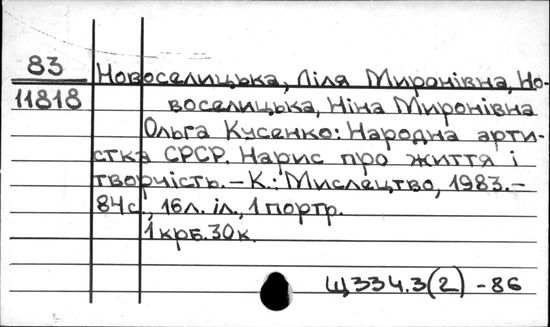 83 Новоселицька, Ліля Миронівна, Но-
11818 воселицька, Ніна Миронівна
Ольга Кусенко: Народна арти-
стка СРСР. Нарис про життя і
творчість. – К.: Мистецтво, 1983. –
84с., 16л. іл., 1 портр.
1 крб. 30к.
Щ334.3(2) - 86